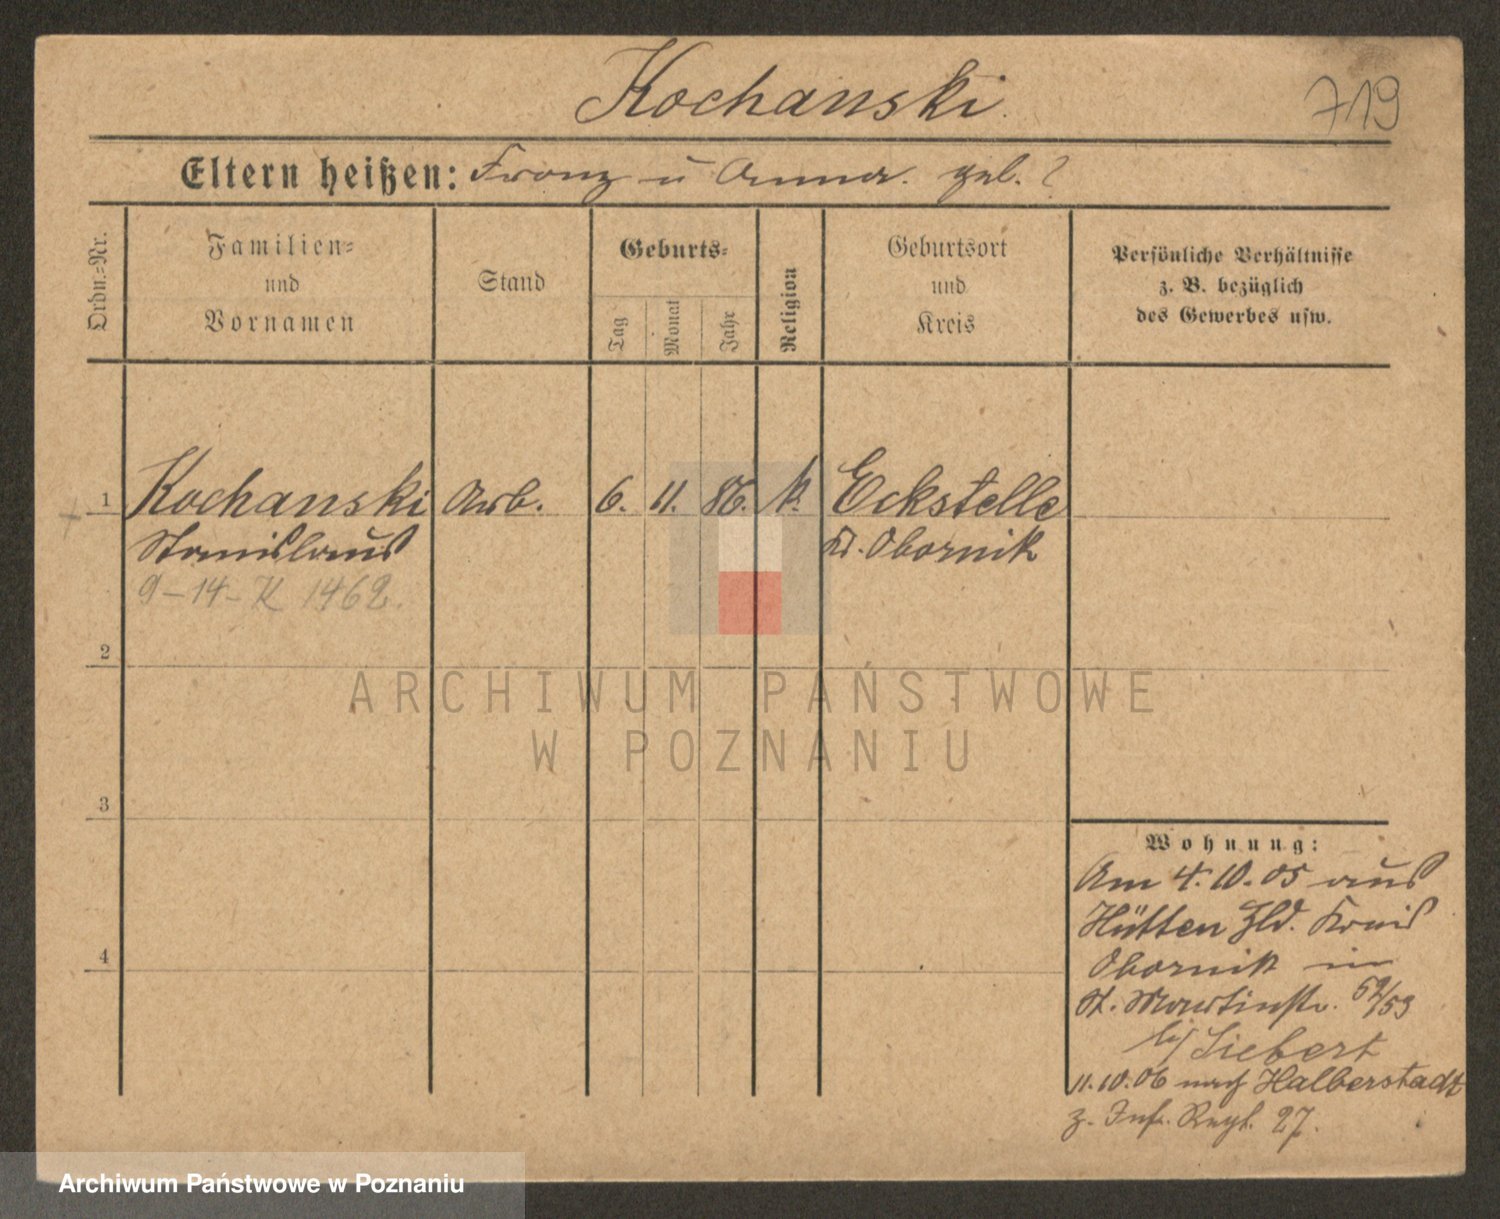 Kochanski.
719
Eltern heißen: Franz u Anna. geb. ?
Ordn.-Nr.
Familien-
und
Vornamen
Stand
Geburts-
Tag
Monat
Jahr
Religion
Geburtsort
und
Kreis
Persönliche Verhältnisse
z. B. bezüglich
des Gewerbes usw.
1 Kochanski Arb. 6. 11. 86. k. Eckstelle
Stanislaus Kr. Obornik
9-14-K 1462.
2
ARCHIWUM PAŃSTWOWE
W POZNANIU
3
Wohnung:
Am 4.10.05 aus
Hütten Hld. Kreis
Obornik in
St. Martinstr. 52/53
b/ Siebert
4
11.10.06 nach Halberstadt
z. Inf. Regt. 27.
Archiwum Państwowe w Poznaniu